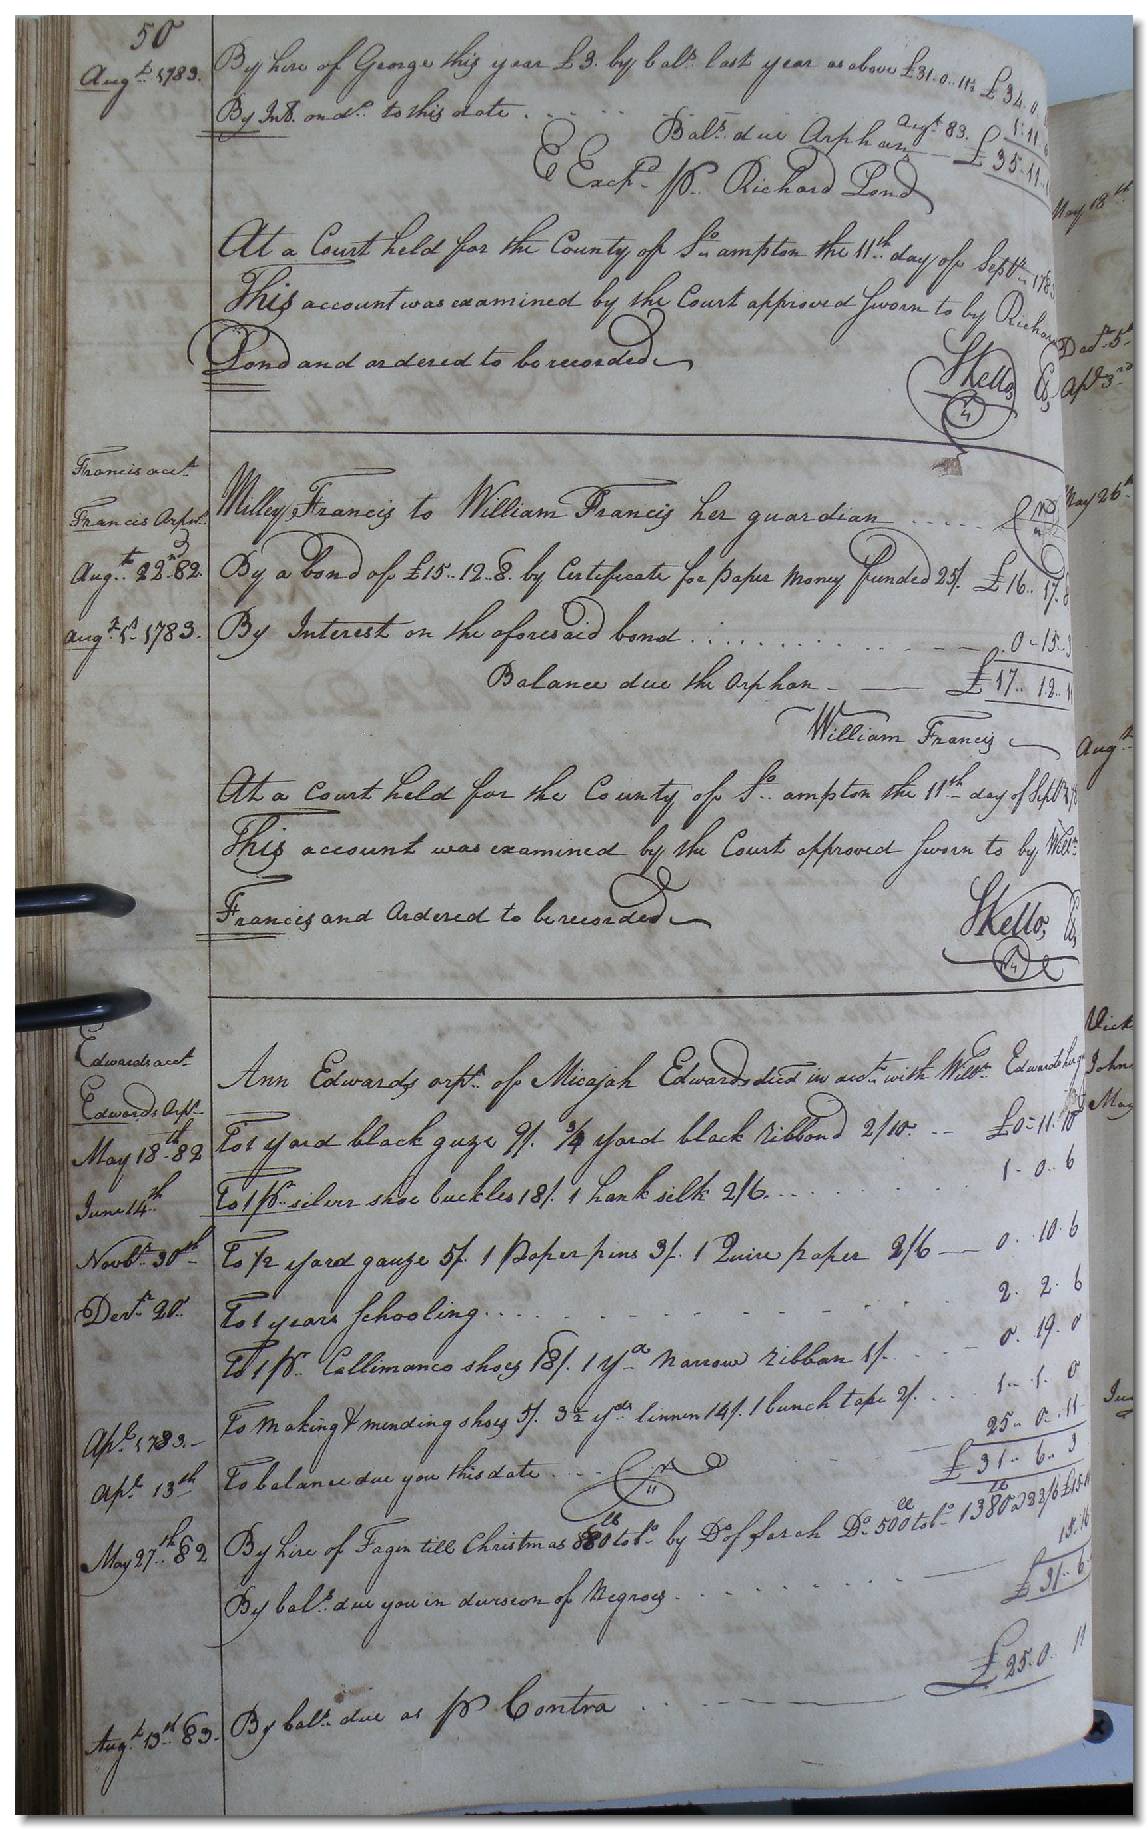 50
Augt. 1783. By hire of George this year £3. by balc. last year as above £31..0..11½ £34. 0
By Int. on do. to this date . . . . 1. 11. 6
Balc. due Orphan Augt. 83. £35..11
E Exch. pr. Richard Pond
At a Court held for the County of So. ampton the 11th day of Septr. 178
This account was examined by the Court approved Sworn to by Richar
Pond and ordered to be recorded
SKello,
Francis acct.
Francis Orpn. Milley Francis to William Francis her guardian . . . . .
Augt. 22d. 82. By a bond of £15..12..8. by Certificate for paper money funded 25/. £16.. 17. 8
Augt. 1st. 1783. By Interest on the aforesaid bond . . . . . 0 - 15..3
Balance due the Orphan - £17.. 12.. 11
William Francis
At a Court held for the County of So. ampton the 11th day of Septr.
This account was examined by the Court approved Sworn to by Willm.
Francis and Ordered to be recorded
SKello,
Edwards acct.
Edwards Orpn. Ann Edwards orpn. of Micajah Edwards decd in acct. with Willm. Edwards her g
May 18th 82 To 1 yard black gaze 9/. ¾ yard black ribbond 2/10. - - £0 - 11. 10
June 14th To 1 pr. silver shoe buckles 18/. 1 hank silk 2/6. . . . 1 - 0. 6
Novbr. 30th To ½ yard gauze 5/. 1 Paper pins 3/. 1 Quire paper 2/6 — 0. 10. 6
Decr. 20. To 1 years Schooling . . . 2. 2. 6
To 1 pr. Callimanco shoes 18/. 1 yd. narrow ribban 1/. . . 0. 19. 0
To making & mending shoes 5/. 3½ yds. linnen 14/. 1 bunch tape 2/. . . 1 - 1. 0
Apl. 1783. - 25.. 0.. 11
Apl. 13th To balance due you this date . . . £31.. 6.. 3
May 27th. 82 By hire of Fagin till Christmas 880 lb tobo. by Do. of Sarah Do. 500 lb tobo. 1380 lb a 22/6
By balc. due you in division of Negroes . . . £31.. 6
£25. 0. 11
Augt. 13st 83. By balc. due as pr Contra . . . —
May 18th
Decr. 5th
Apl. 3rd
May 26th
Augt.
John
May